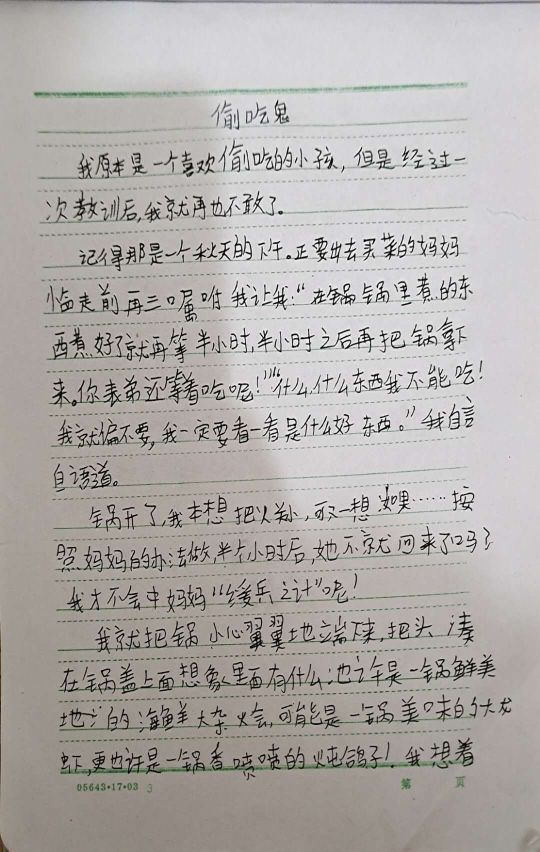 偷吃鬼
我原本是一个喜欢偷吃的小孩，但是经过一
次教训后，我就再也不敢了。
记得那是一个秋天的下午。正要出去买菜的妈妈
临走前再三嘱咐我让我：“在锅锅里煮的东
西煮好了就再等半小时，半小时之后再把锅拿下
来。你表弟还等着吃呢！”“什么，什么东西我不能吃！
我就偏不要，我一定要看一看是什么好东西。”我自言
自语道。
锅开了，我本想把火关小，可一想如果……按
照妈妈的办法做，半个小时后，她不就回来了吗？
我才不会中妈妈“缓兵之计”呢！
我就把锅小心翼翼地端下来，把头凑
在锅盖上面想象里面有什么：也许是一锅鲜美
的海鲜大杂烩，可能是一锅美味的大龙
虾，更也许是一锅香喷喷的炖鸽子！我想着
05643·17·03 3
第 页